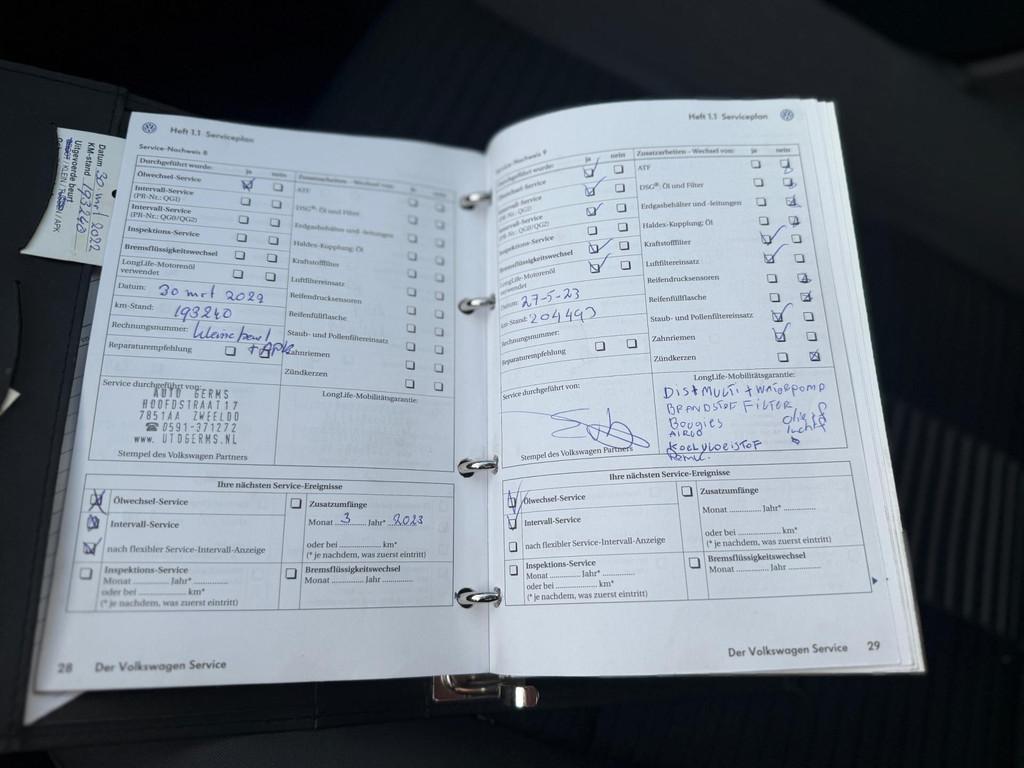 Datum 30 mrt 2022
KM-stand 193240
Uitgevoerde beurt
/ APK
Heft 1.1 Serviceplan
Service-Nachweis 8
Durchgeführt wurde: ja nein
Zusatzarbeiten - Wechsel von: ja nein
Ölwechsel-Service
ATF
Intervall-Service
(PR-Nr.: QG1)
DSG®: Öl und Filter
Intervall-Service
(PR-Nr.: QG0/QG2)
Erdgasbehälter und -leitungen
Inspektions-Service
Haldex-Kupplung: Öl
Bremsflüssigkeitswechsel
Kraftstofffilter
LongLife-Motorenöl
verwendet
Luftfiltereinsatz
Datum: 30 mrt 2022
Reifendrucksensoren
km-Stand: 193240
Reifenfüllflasche
Rechnungsnummer: kleine beurt
Staub- und Pollenfiltereinsatz
+ APK
Reparaturempfehlung
Zahnriemen
Zündkerzen
Service durchgeführt von:
LongLife-Mobilitätsgarantie:
AUTO GERMS
HOOFDSTRAAT 17
7851AA ZWEELOO
☎0591-371272
WWW. UTOGERMS.NL
Stempel des Volkswagen Partners
Ihre nächsten Service-Ereignisse
Ölwechsel-Service
Zusatzumfänge
Intervall-Service
Monat 3 Jahr* 2023
nach flexibler Service-Intervall-Anzeige
oder bei ............ km*
(* je nachdem, was zuerst eintritt)
Inspektions-Service
Monat ............ Jahr* ............
oder bei ............ km*
(* je nachdem, was zuerst eintritt)
Bremsflüssigkeitswechsel
Monat ............ Jahr ............
28 Der Volkswagen Service
Heft 1.1 Serviceplan
Service-Nachweis 9
Durchgeführt wurde: ja nein
Zusatzarbeiten - Wechsel von: ja nein
Ölwechsel-Service
ATF
Intervall-Service
(PR-Nr.: QG1)
DSG®: Öl und Filter
Intervall-Service
(PR-Nr.: QG0/QG2)
Erdgasbehälter und -leitungen
Inspektions-Service
Haldex-Kupplung: Öl
Bremsflüssigkeitswechsel
Kraftstofffilter
LongLife-Motorenöl
verwendet
Luftfiltereinsatz
Datum: 27-5-23
Reifendrucksensoren
km-Stand: 204493
Reifenfüllflasche
Rechnungsnummer:
Staub- und Pollenfiltereinsatz
Reparaturempfehlung
Zahnriemen
Zündkerzen
Service durchgeführt von:
LongLife-Mobilitätsgarantie:
Dist Multi + Waterpomp
Brandstof Filter
Bougies
Airco
Koelvloeistof
Stempel des Volkswagen Partners
Ihre nächsten Service-Ereignisse
Ölwechsel-Service
Zusatzumfänge
Intervall-Service
Monat ............ Jahr* ............
nach flexibler Service-Intervall-Anzeige
oder bei ............ km*
(* je nachdem, was zuerst eintritt)
Inspektions-Service
Monat ............ Jahr* ............
oder bei ............ km*
(* je nachdem, was zuerst eintritt)
Bremsflüssigkeitswechsel
Monat ............ Jahr ............
Der Volkswagen Service 29